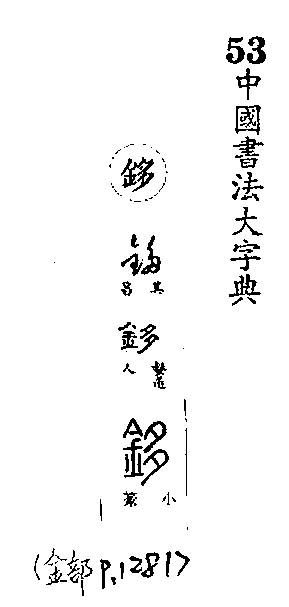 53
中國書法大字典
鉹
鉹
其昌
鉹
人
鉹
小篆
(金部 P.1281)